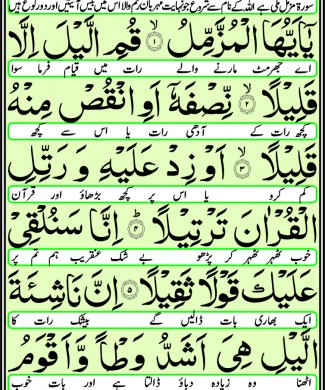 سورۃ مزمل مکی ہے اللہ کے نام سے شروع جو نہایت مہربان رحم والا اس میں بیس آیتیں اور دو رکوع ہیں
يٰۤاَيُّهَا الْمُزَّمِّلُ ۙ﴿۱﴾ قُمِ الَّيْلَ اِلَّا
اے جھرمٹ مارنے والے رات میں قیام فرما سوا
قَلِيْلًا ۙ﴿۲﴾ نِّصْفَهٗۤ اَوِ انْقُصْ مِنْهُ
کچھ رات کے آدھی رات یا اس سے کچھ
قَلِيْلًا ۙ﴿۳﴾ اَوْ زِدْ عَلَيْهِ وَ رَتِّلِ
کم کرو یا اس پر کچھ بڑھاؤ اور قرآن
الْقُرْاٰنَ تَرْتِيْلًا ؕ﴿۴﴾ اِنَّا سَنُلْقِيْ
خوب ٹھہر ٹھہر کر پڑھو بے شک عنقریب ہم تم پر
عَلَيْكَ قَوْلًا ثَقِيْلًا ﴿۵﴾ اِنَّ نَاشِئَةَ
ایک بھاری بات ڈالیں گے بیشک رات کا
الَّيْلِ هِيَ اَشَدُّ وَطْاً وَّ اَقْوَمُ
اٹھنا وہ زیادہ دباؤ ڈالتا ہے اور بات خوب